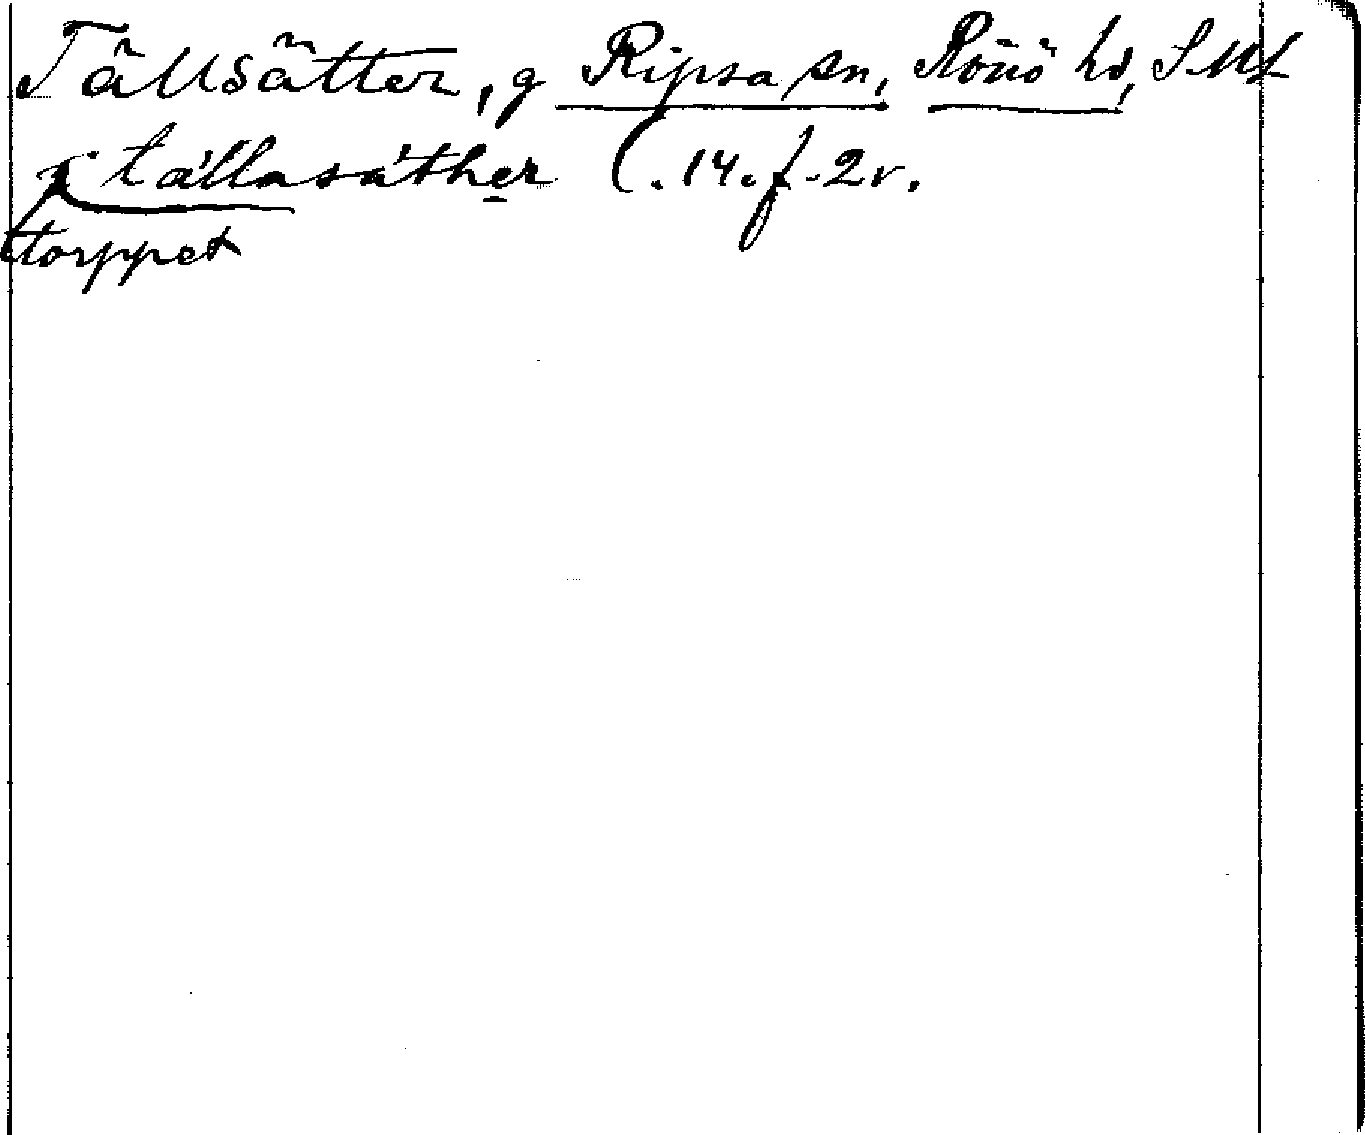 Tällsätter, g Ripsa sn, Rönö hd, SML
tállasáther (. 14. f. 2v.
torppet